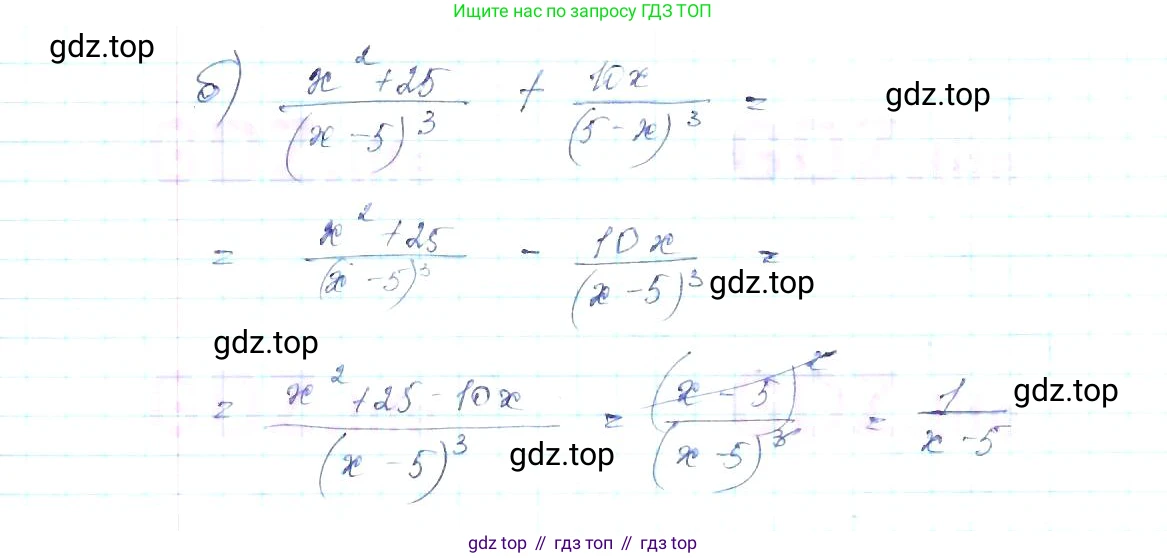 Ищите нас по запросу ГДЗ ТОП
gdz.top
б) (x² + 25)/(x - 5)³ + 10x/(5 - x)³ =
gdz.top
= (x² + 25)/(x - 5)³ - 10x/(x - 5)³ =
gdz.top
gdz.top
= (x² + 25 - 10x)/(x - 5)³ = (x - 5)²/(x - 5)³ = 1/(x - 5)
gdz.top
gdz.top
gdz top // гдз топ // гdz top